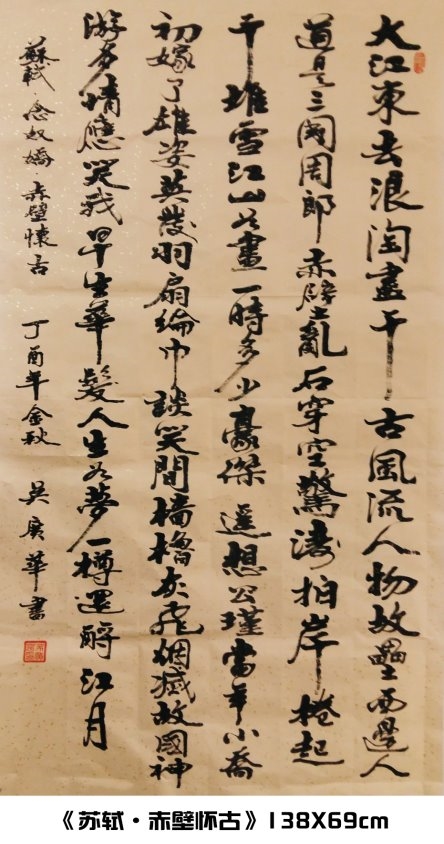 大江東去浪淘盡千古風流人物故壘西邊人
道是三國周郎赤壁亂石穿空驚濤拍岸捲起
千堆雪江山如畫一時多少豪傑遥想公瑾當年小喬
初嫁了雄姿英發羽扇綸巾談笑間檣櫓灰飛烟滅故國神
游多情應笑我早生華髮人生如夢一樽還酹江月
蘇軾·念奴嬌·赤壁懷古 丁酉年金秋 吴廣華書
《苏轼·赤壁怀古》138X69cm